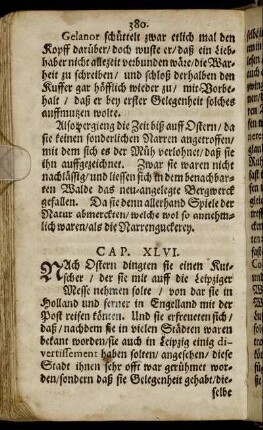 380.
Gelanor schüttelt zwar etlich mal den
Kopff darüber/ doch wuste er/ daß ein Lieb-
haber nicht allezeit verbunden wäre/ die War-
heit zu schreiben/ und schloß derhalben den
Kuffer gar höfflich wieder zu/ mit Vorbe-
halt / daß er bey erster Gelegenheit solches
auffmutzen wolte.
Also vergieng die Zeit biß auff Ostern/ da
sie keinen sonderlichen Narren angetroffen/
mit dem sich es der Müh verlohnet/ daß sie
ihn auffgezeichnet. Zwar sie waren nicht
nachlässig/ und liessen sich in dem benachbar-
ten Walde das neu-angelegte Bergwerck
gefallen. Da sie denn allerhand Spiele der
Natur abmerckten/ welche wol so annehm-
lich waren/ als die Narrenguckerey.
CAP. XLVI.
NAch Ostern dingten sie einen Kut-
scher / der sie mit auff die Leipziger
Messe nehmen solte / von dar sie in
Holland und ferner in Engelland mit der
Post reisen könten. Und sie erfreueten sich/
daß / nachdem sie in vielen Städten waren
bekant worden/ sie auch in Leipzig einig di-
vertissement haben solten/ angesehen/ diese
Stadt ihnen sehr offt war gerühmet wor-
den/ sondern daß sie Gelegenheit gehabt/ die-
selbe